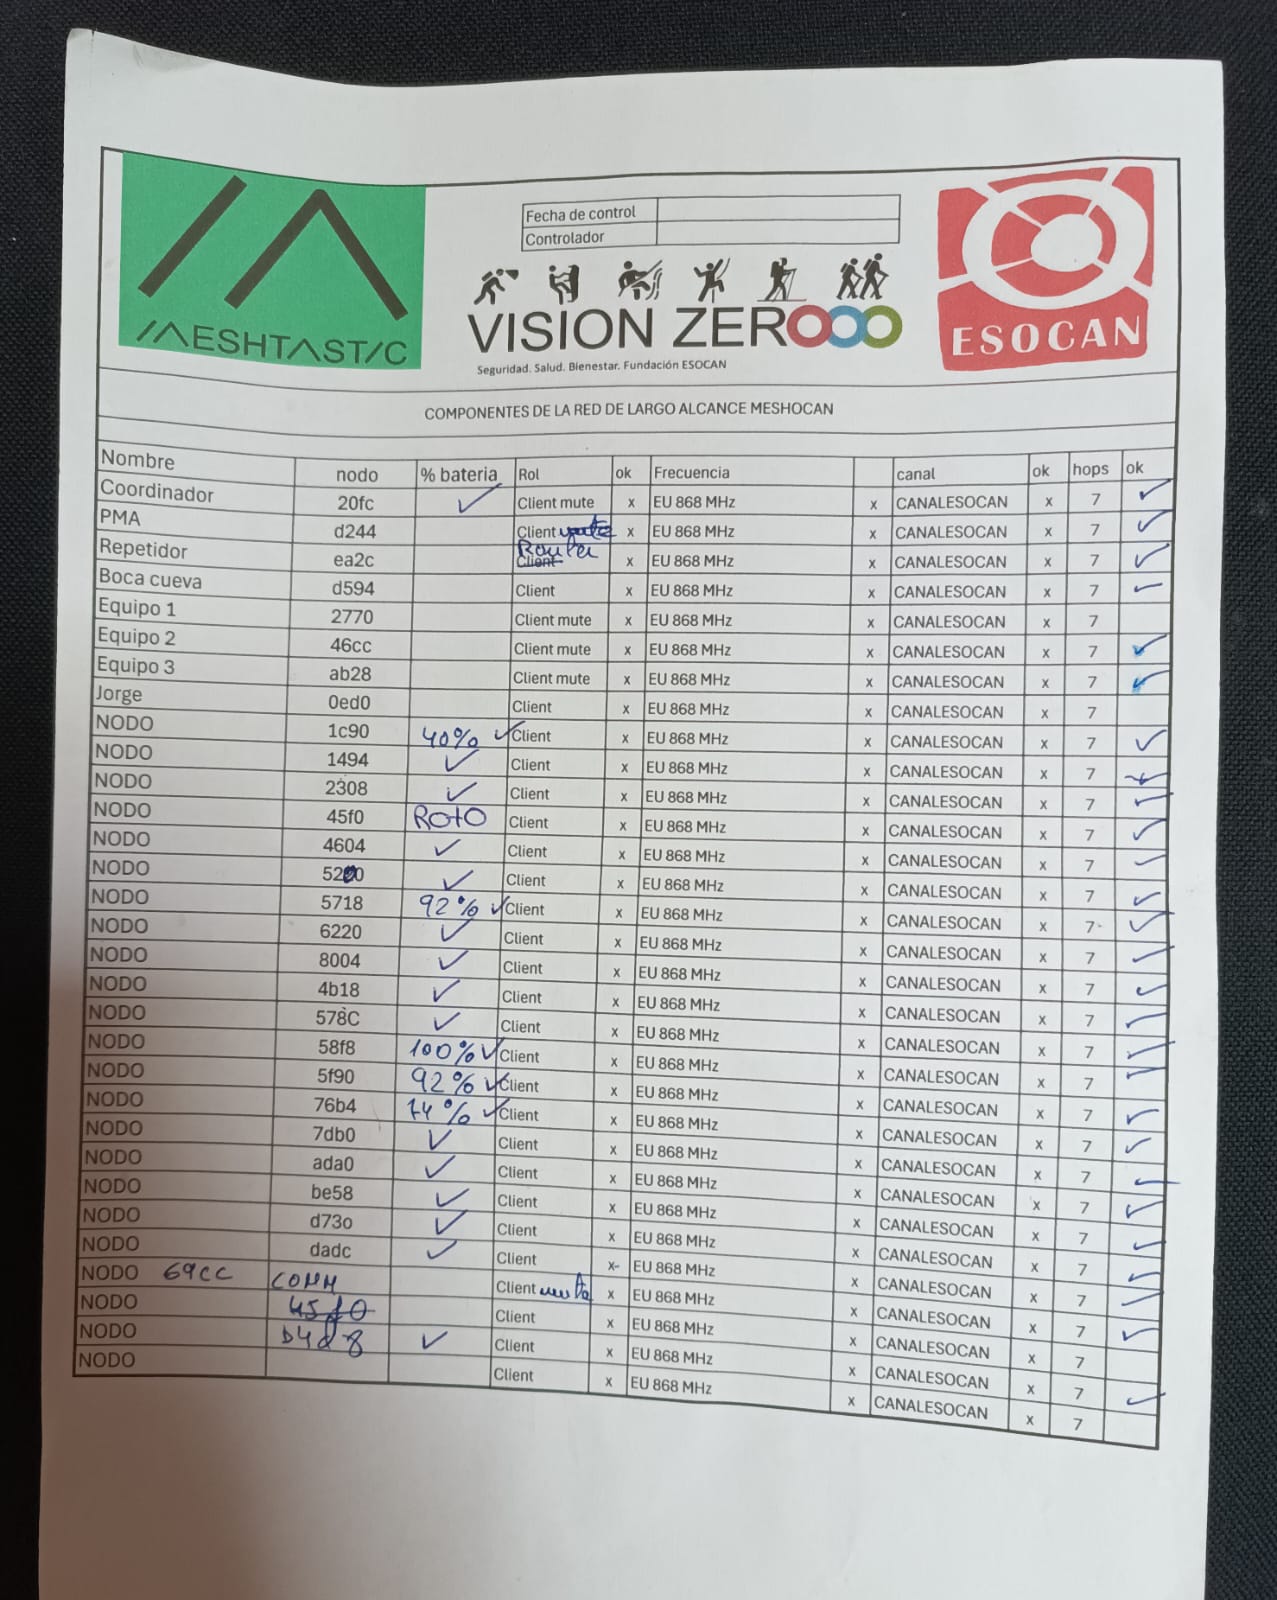 MESHTASTIC
Fecha de control
Controlador
VISION ZEROOO
Seguridad. Salud. Bienestar. Fundación ESOCAN
ESOCAN
COMPONENTES DE LA RED DE LARGO ALCANCE MESHOCAN
Nombre nodo % bateria Rol ok Frecuencia canal ok hops ok
Coordinador 20fc ✓ Client mute x EU 868 MHz x CANALESOCAN x 7 ✓
PMA d244 Client x EU 868 MHz x CANALESOCAN x 7 ✓
Repetidor ea2c Router Client x EU 868 MHz x CANALESOCAN x 7 ✓
Boca cueva d594 Client x EU 868 MHz x CANALESOCAN x 7 ✓
Equipo 1 2770 Client mute x EU 868 MHz x CANALESOCAN x 7
Equipo 2 46cc Client mute x EU 868 MHz x CANALESOCAN x 7 ✓
Equipo 3 ab28 Client mute x EU 868 MHz x CANALESOCAN x 7 ✓
Jorge 0ed0 Client x EU 868 MHz x CANALESOCAN x 7
NODO 1c90 40% ✓ Client x EU 868 MHz x CANALESOCAN x 7 ✓
NODO 1494 ✓ Client x EU 868 MHz x CANALESOCAN x 7 ✓
NODO 2308 ✓ Client x EU 868 MHz x CANALESOCAN x 7 ✓
NODO 45f0 Roto Client x EU 868 MHz x CANALESOCAN x 7 ✓
NODO 4604 ✓ Client x EU 868 MHz x CANALESOCAN x 7 ✓
NODO ✓ Client x EU 868 MHz x CANALESOCAN x 7 ✓
NODO 5718 92% ✓ Client x EU 868 MHz x CANALESOCAN x 7 ✓
NODO 6220 ✓ Client x EU 868 MHz x CANALESOCAN x 7 ✓
NODO 8004 ✓ Client x EU 868 MHz x CANALESOCAN x 7 ✓
NODO 4b18 ✓ Client x EU 868 MHz x CANALESOCAN x 7 ✓
NODO 578C ✓ Client x EU 868 MHz x CANALESOCAN x 7 ✓
NODO 58f8 100% ✓ Client x EU 868 MHz x CANALESOCAN x 7 ✓
NODO 5f90 92% ✓ Client x EU 868 MHz x CANALESOCAN x 7 ✓
NODO 76b4 74% ✓ Client x EU 868 MHz x CANALESOCAN x 7 ✓
NODO 7db0 ✓ Client x EU 868 MHz x CANALESOCAN x 7 ✓
NODO ada0 ✓ Client x EU 868 MHz x CANALESOCAN x 7 ✓
NODO be58 ✓ Client x EU 868 MHz x CANALESOCAN x 7 ✓
NODO d73o ✓ Client x EU 868 MHz x CANALESOCAN x 7 ✓
NODO dadc ✓ Client x EU 868 MHz x CANALESOCAN x 7 ✓
NODO 69CC COMM Client mute x EU 868 MHz x CANALESOCAN x 7 ✓
NODO 45f0 Client x EU 868 MHz x CANALESOCAN x 7
NODO D4d8 ✓ Client x EU 868 MHz x CANALESOCAN x 7 ✓
NODO Client x EU 868 MHz x CANALESOCAN x 7